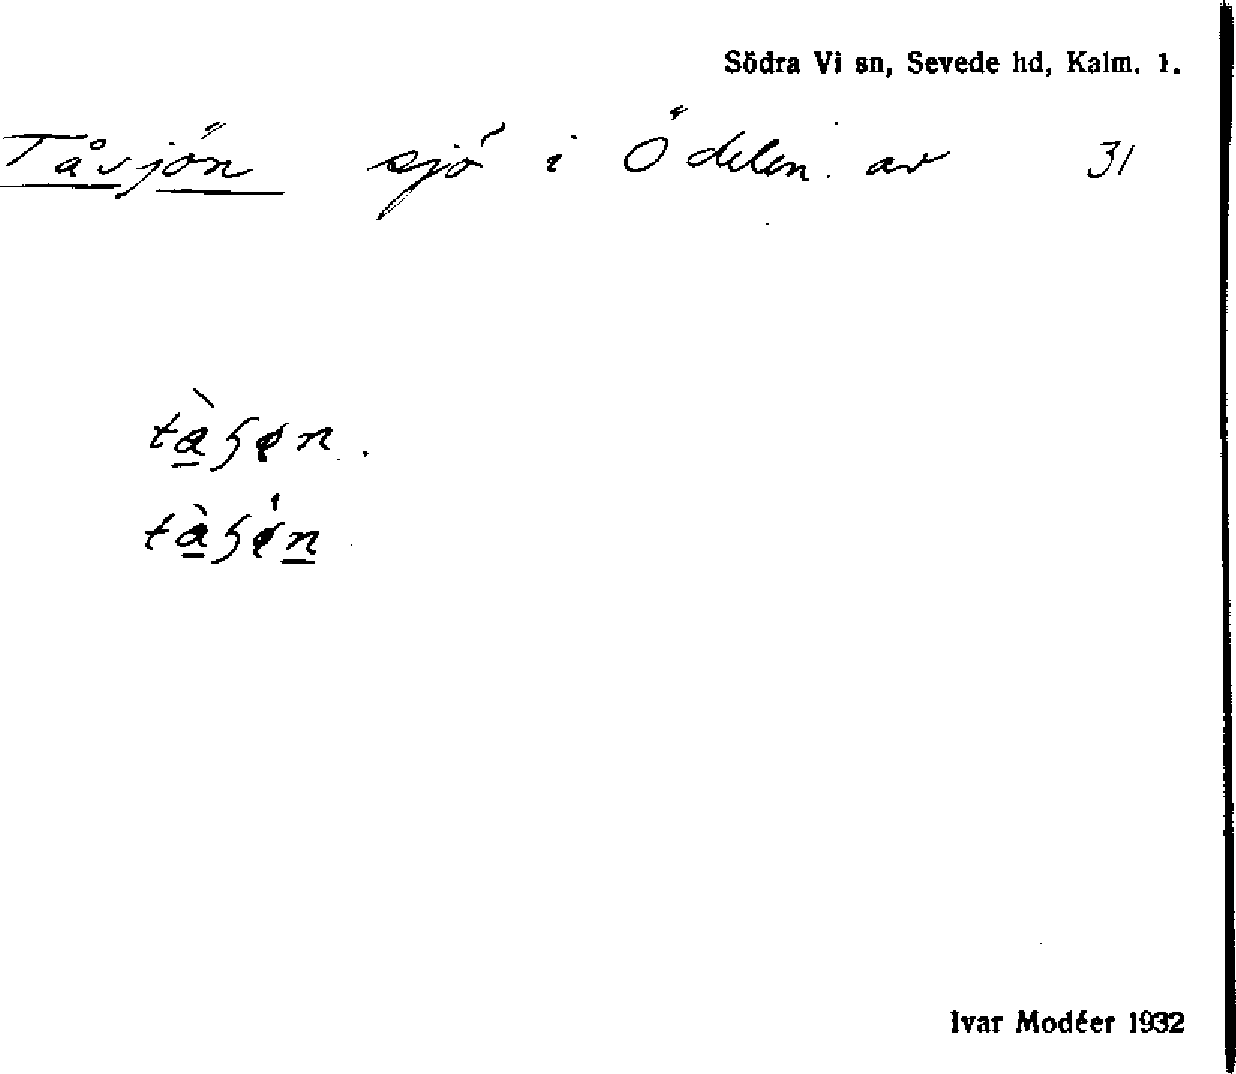 Södra Vi sn, Sevede hd, Kalm. l.
Tåsjön sjö i Ö delen av 31
Ivar Modéer 1932